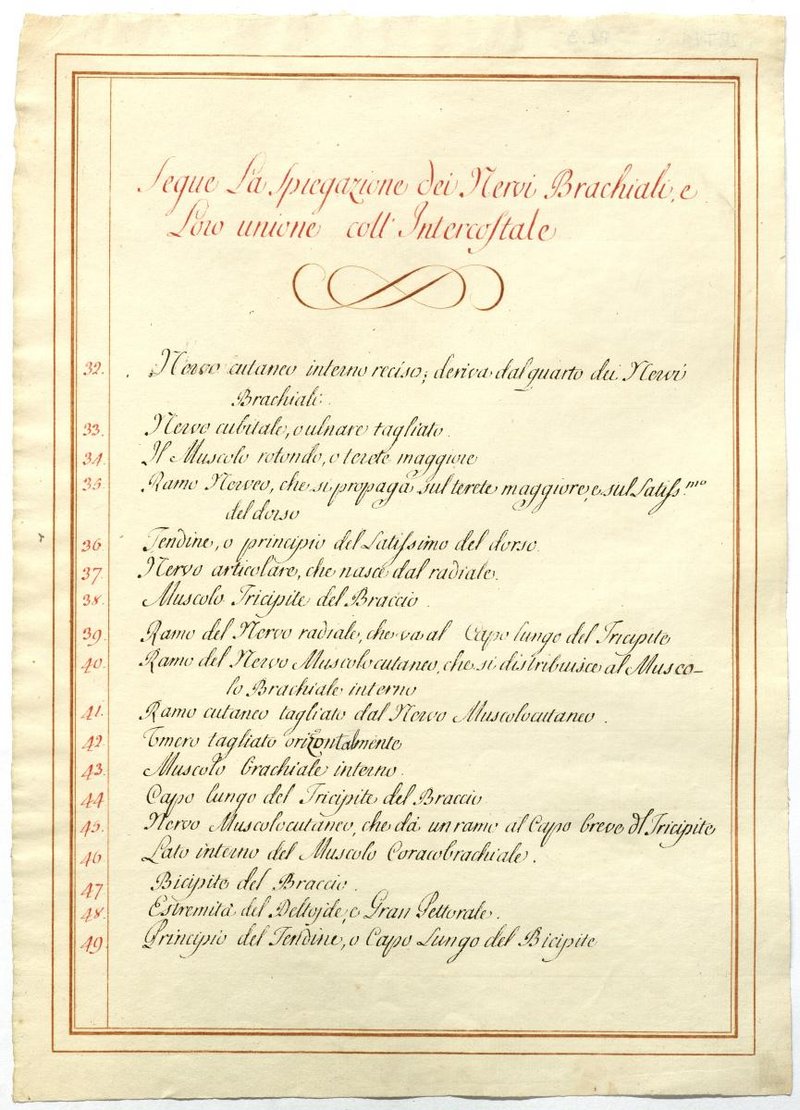 Segue La Spiegazione dei Nervi Brachiali, e
Loro unione coll' Intercostale
32. Nervo cutaneo interno reciso; deriva dal quarto dei Nervi
Brachiali.
33. Nervo cubitale, o ulnare tagliato.
34. Il Muscolo rotondo, o terete maggiore
35. Ramo Nerveo, che si propaga sul terete maggiore, e sul Latiss.mo
del dorso
36 Tendine, o principio del Latissimo del dorso.
37. Nervo articolare, che nasce dal radiale.
38. Muscolo Tricipite del Braccio.
39. Ramo del Nervo radiale, che va al Capo lungo del Tricipite
40. Ramo del Nervo Muscolocutaneo, che si distribuisce al Musco-
lo Brachiale interno
41. Ramo cutaneo tagliato dal Nervo Muscolocutaneo.
42. Omero tagliato orizontalmente
43. Muscolo brachiale interno.
44 Capo lungo del Tricipite del Braccio
45. Nervo Muscolocutaneo, che dà un ramo al Capo breve dl Tricipite
46 Lato interno del Muscolo Coracobrachiale.
47 Bicipite del Braccio.
48. Estremità del Deltojde, e Gran Pettorale.
49. Principio del Tendine, o Capo Lungo del Bicipite